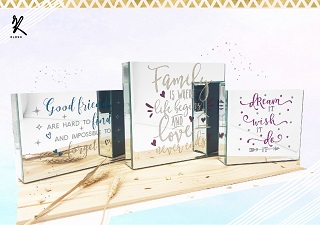 Good friends
ARE HARD TO find
AND IMPOSSIBLE TO
forget
Family
IS WHERE
life begins
AND
love
never ends
dream IT
wish IT
do IT